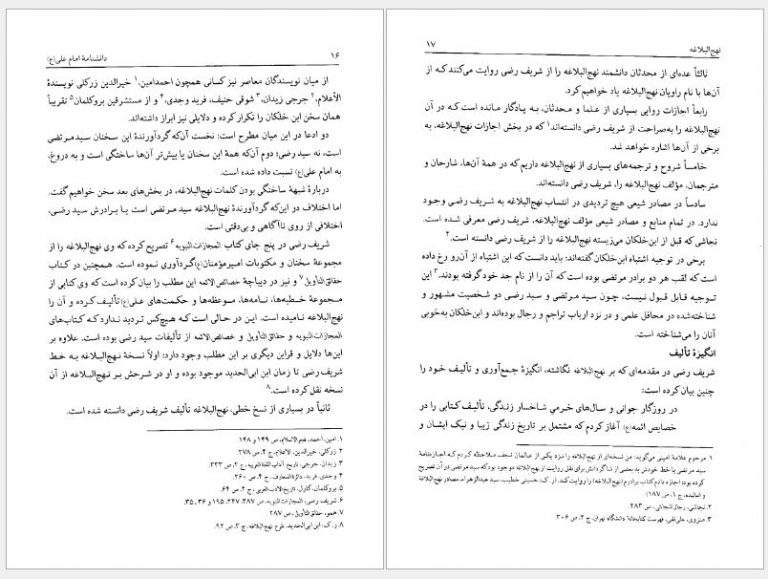 ۱۶
دانشنامهٔ امام علی(ع)
از میان نویسندگان معاصر نیز کسانی همچون احمدامین،۱ خیرالدین زرکلی نویسندهٔ
الأعلام،۲ جرجی زیدان،۳ شوقی حنیف، فرید وجدی،۴ و از مستشرقین بروکلمان۵ تقریباً
همان سخن ابن خلکان را تکرار کرده و دلایلی نیز ابراز داشته‌اند.
دو ادعا در این میان مطرح است: نخست آن‌که گردآورندهٔ این سخنان سید مرتضی
است، نه سید رضی؛ دوم آن‌که همهٔ این سخنان یا بیش‌تر آن‌ها ساختگی است و به دروغ،
به امام علی(ع) نسبت داده شده است.
دربارهٔ شبههٔ ساختگی بودن کلمات نهج‌البلاغه، در بخش‌های بعد سخن خواهیم گفت.
اما اختلاف در این‌که گردآورندهٔ نهج‌البلاغه سید مرتضی است یا برادرش سید رضی،
اختلافی از روی ناآگاهی و بی‌دقتی است.
شریف رضی در پنج جای کتاب المجازات النبویه۶ تصریح کرده که وی نهج‌البلاغه را از
مجموعهٔ سخنان و مکتوبات امیرمؤمنان(ع) گردآوری نموده است. همچنین در کتاب
حقائق التأویل۷ و نیز در دیباچهٔ خصائص الائمه این مطلب را بیان کرده است که وی کتابی از
مجموعهٔ خطبه‌ها، نامه‌ها، موعظه‌ها و حکمت‌های علی(ع) تألیف کرده و آن را
نهج‌البلاغه نامیده است. این در حالی است که هیچ‌کس تردید ندارد که کتاب‌های
المجازات النبویه و حقائق التأویل و خصائص الائمه از تألیفات سید رضی بوده است. علاوه بر
این‌ها دلایل و قراین دیگری بر این مطلب وجود دارد: اولاً نسخهٔ نهج‌البلاغه به خط
شریف رضی تا زمان ابن ابی‌الحدید موجود بوده و او در شرحش بر نهج‌البلاغه از آن
نسخه نقل کرده است.۸
ثانیاً در بسیاری از نسخ خطی، نهج‌البلاغه تألیف شریف رضی دانسته شده است.
۱. امین، احمد، فجرالاسلام، ص ۱۴۹ و ۱۴۸.
۲. زرکلی، خیرالدین، الاعلام، ج ۴، ص ۲۷۸.
۳. زیدان، جرجی، تاریخ آداب اللغة العربیه، ج ۲، ص ۳۳۳.
۴. وجدی، فرید، دائرةالمعارف، ج ۴، ص ۲۶۰.
۵. بروکلمان، کارل، تاریخ‌الادب‌العربی، ج ۲، ص ۶۴.
۶. شریف رضی، المجازات النبویه، ص ۳۸۷، ۲۴۷، ۱۹۵ و ۳۶، ۳۵.
۷. همو، حقائق التأویل، ص ۲۸۷
۸. ر.ک: ابن ابی‌الحدید، شرح نهج‌البلاغه، ج ۳، ص ۹۲.
نهج‌البلاغه
۱۷
ثالثاً عده‌ای از محدثان دانشمند نهج‌البلاغه را از شریف رضی روایت می‌کنند که از
آن‌ها با نام راویان نهج‌البلاغه یاد خواهیم کرد.
رابعاً اجازات روایی بسیاری از علما و محدثان، به یادگار مانده است که در آن
نهج‌البلاغه را به‌صراحت از شریف رضی دانسته‌اند۱ که در بخش اجازات نهج‌البلاغه، به
برخی از آن‌ها اشاره خواهد شد.
خامساً شروح و ترجمه‌های بسیاری از نهج‌البلاغه داریم که در همهٔ آن‌ها، شارحان و
مترجمان، مؤلف نهج‌البلاغه را، شریف رضی دانسته‌اند.
سادساً در مصادر شیعی هیچ تردیدی در انتساب نهج‌البلاغه به شریف رضی وجود
ندارد. در تمام منابع و مصادر شیعی مؤلف نهج‌البلاغه، شریف رضی معرفی شده است.
نجاشی که قبل از ابن‌خلکان می‌زیسته نهج‌البلاغه را از شریف رضی دانسته است.۲
برخی در توجیه اشتباه ابن‌خلکان گفته‌اند: باید دانست که این اشتباه از آن‌رو رخ داده
است که لقب هر دو برادر مرتضی بوده است که آن را از نام جد خود گرفته بودند.۳ این
توجیه قابل قبول نیست، چون سید مرتضی و سید رضی دو شخصیت مشهور و
شناخته‌شده در محافل علمی و در نزد ارباب تراجم و رجال بوده‌اند و ابن‌خلکان به‌خوبی
آنان را می‌شناخته است.
انگیزهٔ تألیف
شریف رضی در مقدمه‌ای که بر نهج‌البلاغه نگاشته، انگیزهٔ جمع‌آوری و تألیف خود را
چنین بیان کرده است:
در روزگار جوانی و سال‌های خرمی شاخسار زندگی، تألیف کتابی را در
خصایص ائمه(ع) آغاز کردم که مشتمل بر تاریخ زندگی زیبا و نیک ایشان و
۱. مرحوم علامهٔ امینی می‌گوید: من نسخه‌ای از نهج‌البلاغه را نزد یکی از عالمان نجف ملاحظه کردم که اجازه‌نامهٔ
سید مرتضی با خط خودش به بعضی از شاگردانش برای نقل روایت از نهج‌البلاغه موجود بود که سید مرتضی در آن تصریح
کرده بود: اجازه دادم کتاب برادرم (نهج‌البلاغه) را روایت کند. (ر.ک: حسینی خطیب، سید عبدالزهراء، مصادر نهج‌البلاغه
و اسانیده، ج ۱، ص ۱۸۷)
۲. نجاشی، رجال النجاشی، ص ۲۸۳.
۳. منزوی، علی‌نقی، فهرست کتابخانهٔ دانشگاه تهران، ج ۲، ص ۳۰۶.